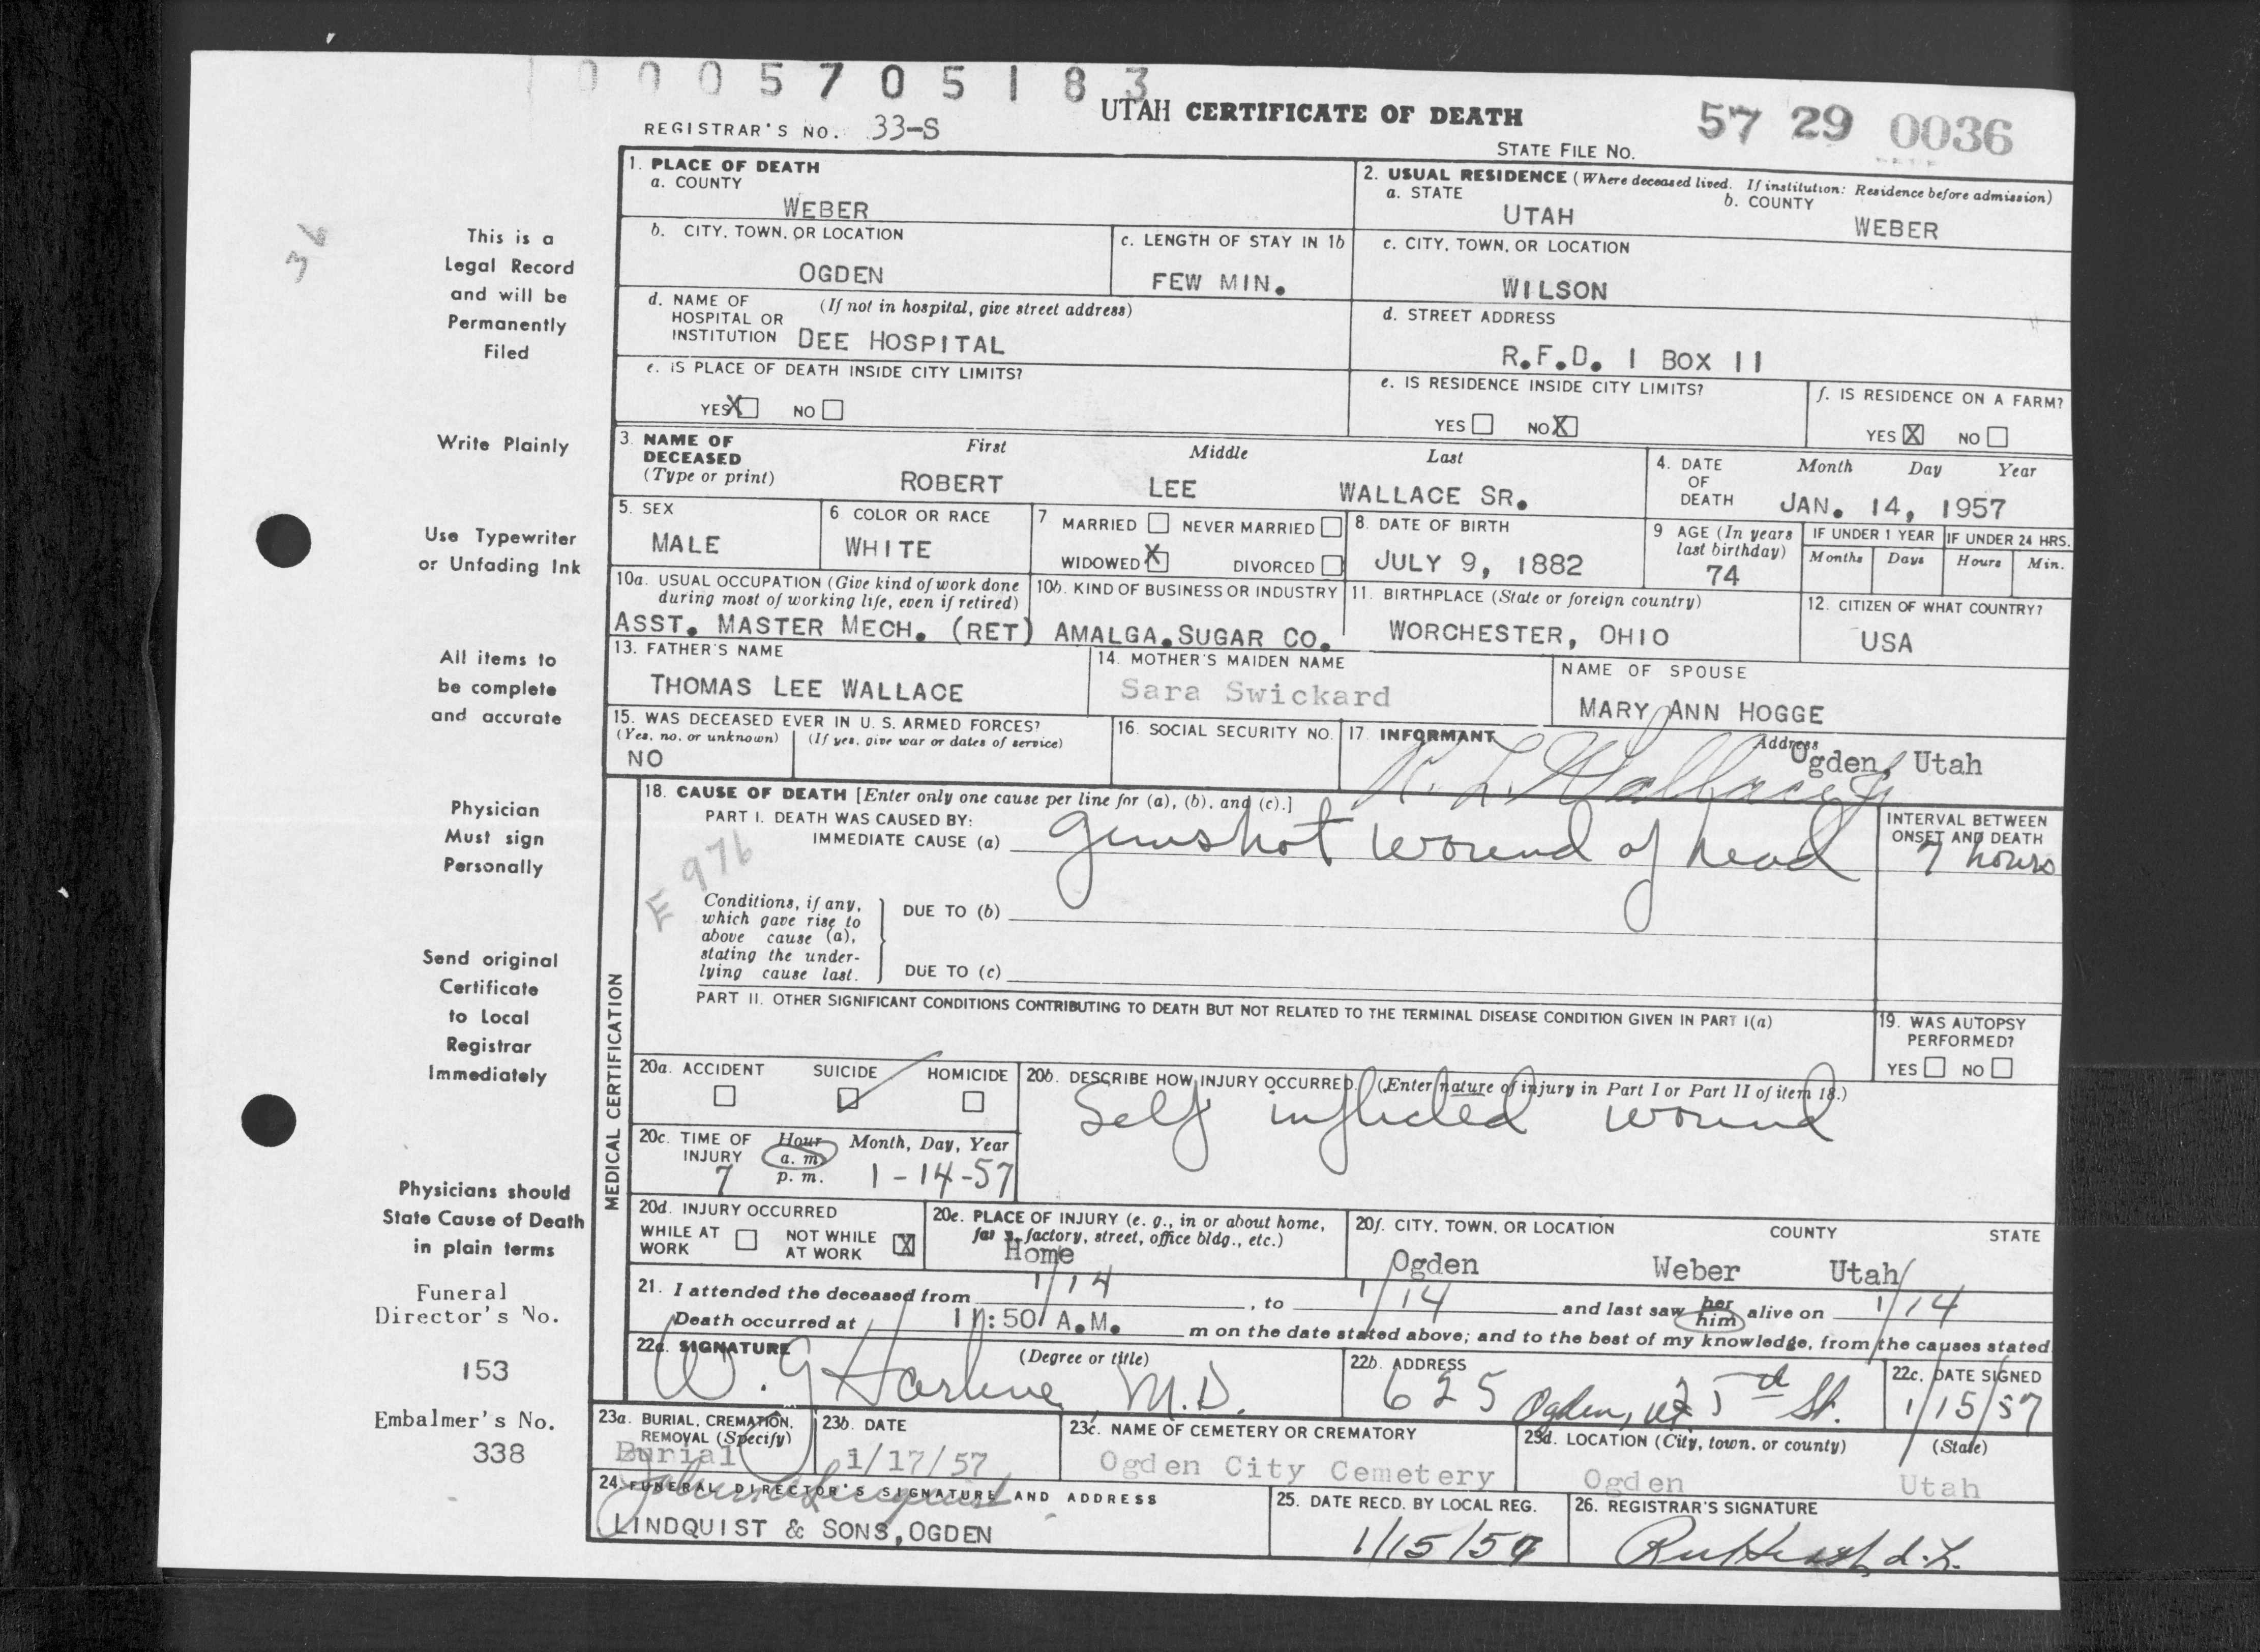 0005705183
UTAH CERTIFICATE OF DEATH
57 29 0036
REGISTRAR'S NO. 33-S
STATE FILE NO.
36
This is a
Legal Record
and will be
Permanently
Filed
Write Plainly
Use Typewriter
or Unfading Ink
All items to
be complete
and accurate
Physician
Must sign
Personally
Send original
Certificate
to Local
Registrar
Immediately
Physicians should
State Cause of Death
in plain terms
Funeral
Director's No.
153
Embalmer's No.
338
1. PLACE OF DEATH
a. COUNTY
WEBER
2. USUAL RESIDENCE (Where deceased lived. If institution: Residence before admission)
a. STATE
UTAH
b. COUNTY
WEBER
b. CITY, TOWN, OR LOCATION
OGDEN
c. LENGTH OF STAY IN 1b
FEW MIN.
c. CITY, TOWN, OR LOCATION
WILSON
d. NAME OF HOSPITAL OR INSTITUTION (If not in hospital, give street address)
DEE HOSPITAL
d. STREET ADDRESS
R.F.D. 1 BOX 11
e. IS PLACE OF DEATH INSIDE CITY LIMITS?
YES X NO
e. IS RESIDENCE INSIDE CITY LIMITS?
YES NO X
f. IS RESIDENCE ON A FARM?
YES X NO
3. NAME OF DECEASED (Type or print)
First Middle Last
ROBERT LEE WALLACE SR.
4. DATE OF DEATH
Month Day Year
JAN. 14, 1957
5. SEX
MALE
6 COLOR OR RACE
WHITE
7 MARRIED NEVER MARRIED
WIDOWED X DIVORCED
8. DATE OF BIRTH
JULY 9, 1882
9 AGE (In years last birthday)
74
IF UNDER 1 YEAR
Months Days
IF UNDER 24 HRS.
Hours Min.
10a. USUAL OCCUPATION (Give kind of work done during most of working life, even if retired)
ASST. MASTER MECH. (RET)
10b. KIND OF BUSINESS OR INDUSTRY
AMALGA.SUGAR CO.
11. BIRTHPLACE (State or foreign country)
WORCHESTER, OHIO
12. CITIZEN OF WHAT COUNTRY?
USA
13. FATHER'S NAME
THOMAS LEE WALLACE
14. MOTHER'S MAIDEN NAME
Sara Swickard
NAME OF SPOUSE
MARY ANN HOGGE
15. WAS DECEASED EVER IN U. S. ARMED FORCES?
(Yes, no, or unknown) (If yes, give war or dates of service)
NO
16. SOCIAL SECURITY NO.
17. INFORMANT
R. L. Wallace Jr
Address
Ogden, Utah
MEDICAL CERTIFICATION
18. CAUSE OF DEATH [Enter only one cause per line for (a), (b), and (c).]
PART I. DEATH WAS CAUSED BY:
IMMEDIATE CAUSE (a) gunshot wound of head
INTERVAL BETWEEN ONSET AND DEATH
7 hours
E 976
Conditions, if any, which gave rise to above cause (a), stating the underlying cause last.
DUE TO (b)
DUE TO (c)
PART II. OTHER SIGNIFICANT CONDITIONS CONTRIBUTING TO DEATH BUT NOT RELATED TO THE TERMINAL DISEASE CONDITION GIVEN IN PART I(a)
19. WAS AUTOPSY PERFORMED?
YES NO
20a. ACCIDENT SUICIDE HOMICIDE
20b. DESCRIBE HOW INJURY OCCURRED. (Enter nature of injury in Part I or Part II of item 18.)
Self inflicted wound
20c. TIME OF INJURY
Hour Month, Day, Year
a. m.
p. m.
7 1-14-57
20d. INJURY OCCURRED
WHILE AT WORK NOT WHILE AT WORK X
20e. PLACE OF INJURY (e. g., in or about home, farm, factory, street, office bldg., etc.)
Home
20f. CITY, TOWN, OR LOCATION COUNTY STATE
Ogden Weber Utah
21. I attended the deceased from 1/14, to 1/14 and last saw her him alive on 1/14
Death occurred at 11:50 A.M. m on the date stated above; and to the best of my knowledge, from the causes stated
22a. SIGNATURE (Degree or title)
W. G. M.D.
22b. ADDRESS
625 St. Ogden, Ut
22c. DATE SIGNED
1/15/57
23a. BURIAL, CREMATION, REMOVAL (Specify)
Burial
23b. DATE
1/17/57
23c. NAME OF CEMETERY OR CREMATORY
Ogden City Cemetery
23d. LOCATION (City, town, or county) (State)
Ogden Utah
24. FUNERAL DIRECTOR'S SIGNATURE AND ADDRESS
LINDQUIST & SONS,OGDEN
25. DATE RECD. BY LOCAL REG.
1/15/57
26. REGISTRAR'S SIGNATURE